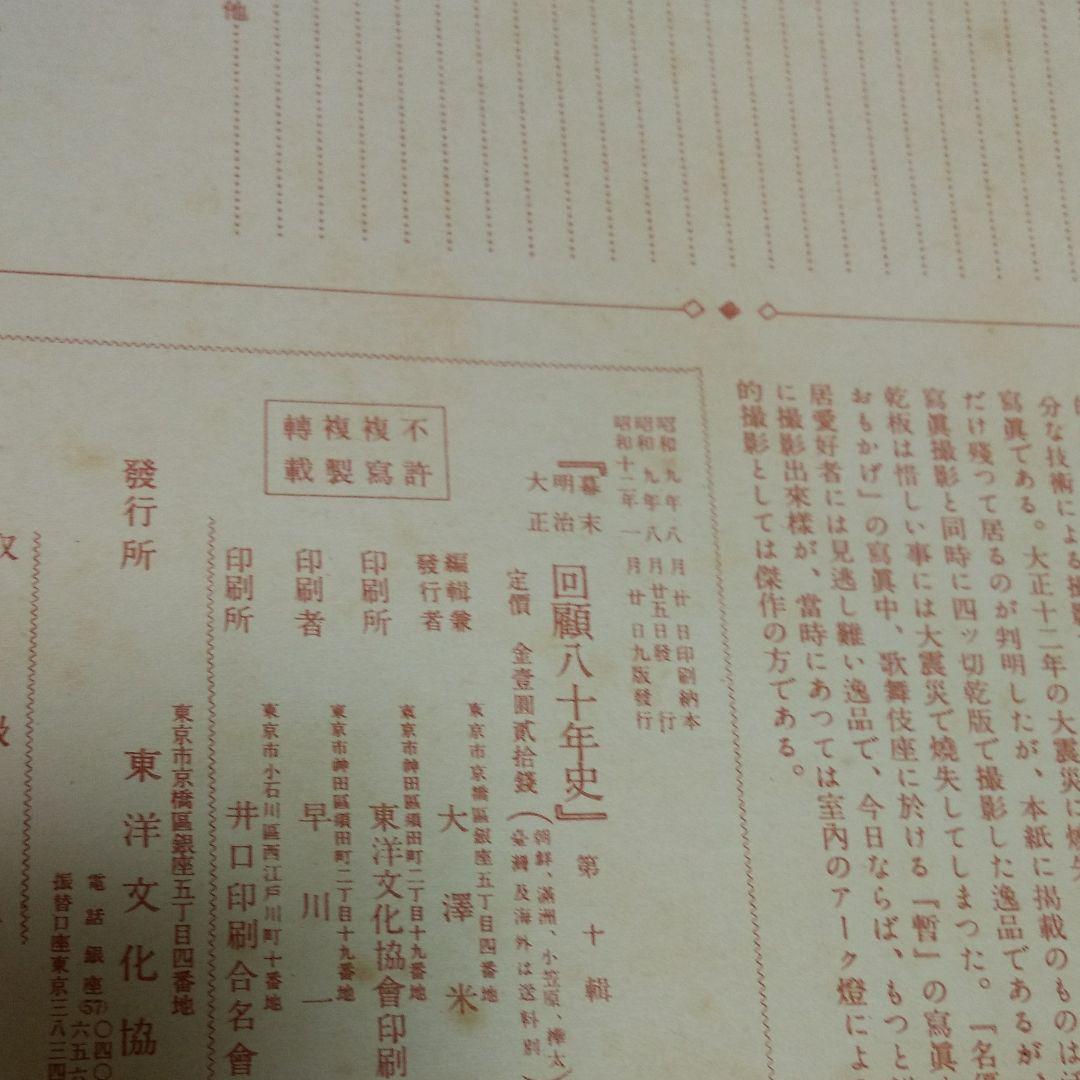 他
分な技術による撮影
寫眞である。大正十二年の大震災に燒失
だけ殘つて居るのが判明したが、本紙に掲載のものは
寫眞撮影と同時に四ッ切乾版で撮影した逸品であるが、
乾板は惜しい事には大震災で燒失してしまつた。『名優
おもかげ』の寫眞中、歌舞伎座に於ける『暫』の寫眞
居愛好者には見逃し難い逸品で、今日ならば、もつと
に撮影出來樣が、當時にあつては室內のアーク燈によ
的撮影としては傑作の方である。
昭和九年八月廿日印刷納本
昭和九年八月廿五日發行
昭和十二年一月廿日九版發行
『幕末
明治
大正
回顧八十年史』第十輯
定價 金壹圓貳拾錢
(朝鮮、滿洲、小笠原、樺太
臺灣及海外は送料別)
編輯兼
發行者
東京市京橋區銀座五丁目四番地
大澤米
印刷所
東京市神田區須田町二丁目十九番地
東洋文化協會印刷
印刷者
東京市神田區須田町二丁目十九番地
早川一
印刷所
東京市小石川區西江戸川町十番地
井口印刷合名會
不許
複寫
複製
轉載
發行所
東京市京橋區銀座五丁目四番地
東洋文化協
電話銀座(57)〇四〇
六五六
振替口座東京三八三四